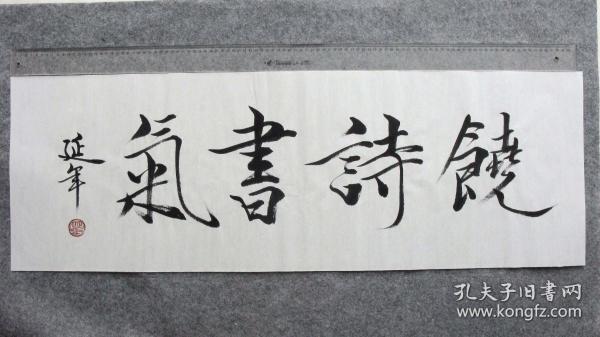 饒詩書氣
延年
孔夫子旧書网
www.kongfz.com